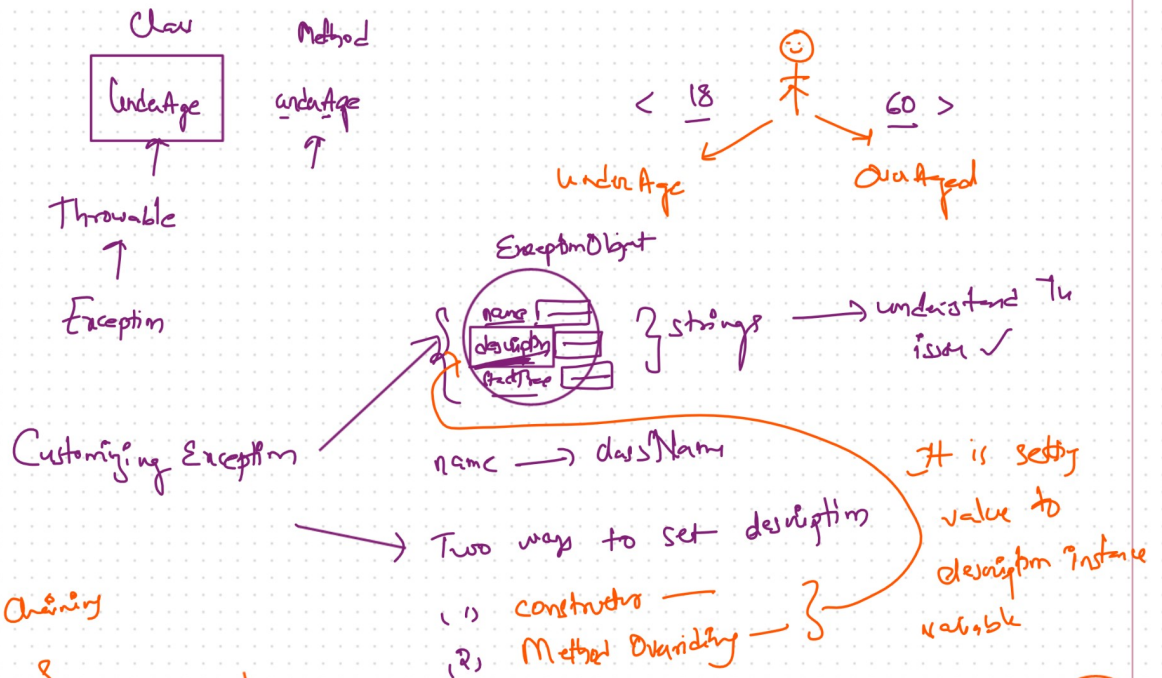 Class
Method
UnderAge
underAge
< 18
60 >
UnderAge
OverAged
Throwable
Exception
ExceptionObject
name
description
stackTrace
strings
understand The
issue ✓
Customizing Exception
name → className
Two ways to set description
(1) constructor
(2) Method Overriding
It is setting
value to
description instance
variable
Chaining